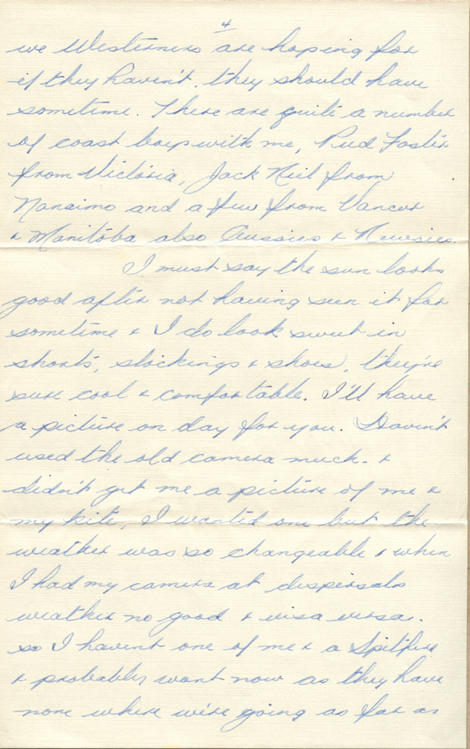 4
we Westerners are hoping for
if they haven't, they should have
sometime. There are quite a number
of coast boys with me, Pud Foster
from Victoria, Jack Neil from
Nanaimo and a few from Vancvr
& Manitoba also Aussies & Newsies
I must say the sun looks
good after not having seen it for
sometime & I do look sweet in
shorts, stockings & shoes, they're
sure cool & comfortable. I'll have
a picture on day for you. Haven't
used the old camera much. &
didn't get me a picture of me &
my kite, I wanted one but the
weather was so changeable & when
I had my camera at dispersals
weather no good & visa versa.
so I havent one of me & a Spitfire
& probably wont now as they have
none where we're going as far as